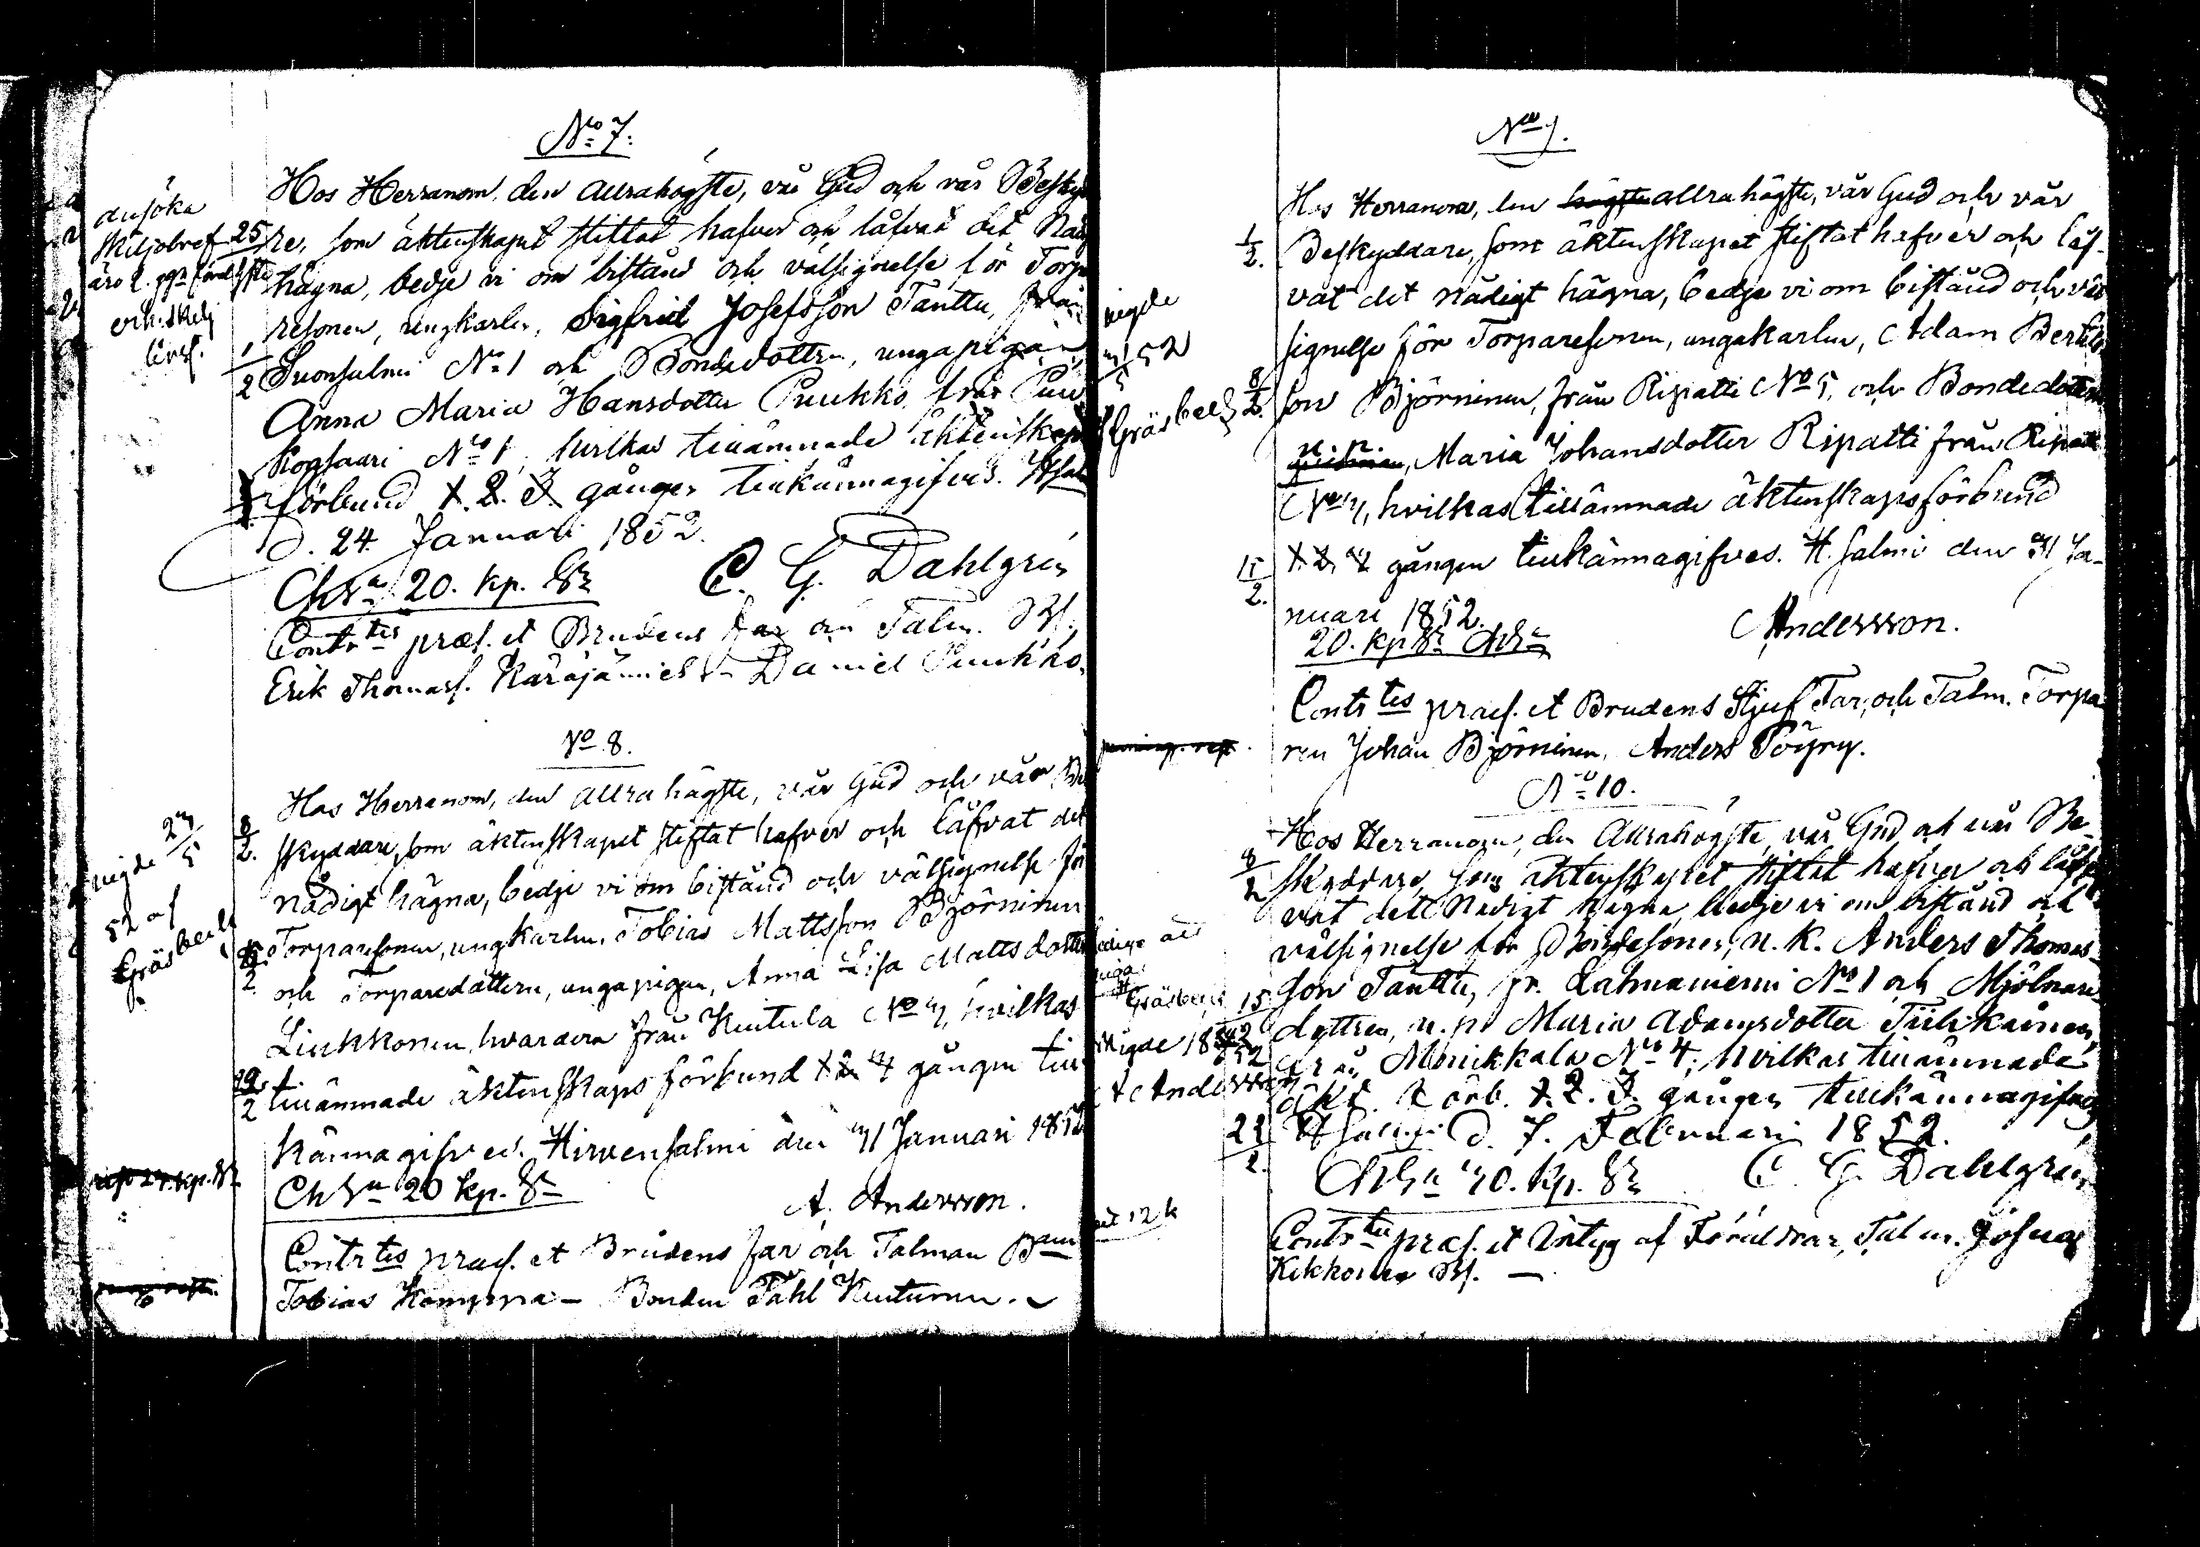 No 7.
Hos Herranom, den allrahögste, vår Gud och vår Besky
re, som äktenskapet stiftat hafver och låfvat det Nåd
hägna, bedje vi om bistånd och välsignelse för Torp
resonen, ungkarlen, Sigfrid Josefsson Tanttu, från
Suonsalmi No 1 och Bondedottren, ungapigan
Anna Maria Hansdotter Puukko från Puu
kogsaari No 1, hvilkas tillämnade äktenskaps
förbund 1. 2. 3. gången tillkännagifves. Hsal
d. 24. Januari 1852.
ChSn 20. kp. Sr C. G. Dahlgrén
Contrtes præs. et Brudens far och Talm. Bf.
Erik Thomass. Käräjämies Daniel Puukko.
ansöka
Skiljobref 25
äro
erh. skilj
bref.
1
2
No 8.
Hos Herranom, den allrahögste, vår Gud och vår Be
skyddare, som äktenskapet stiftat hafver och låfvat det
nådigt hägna, bedje vi om bistånd och välsignelse för
Torparesonen, ungkarlen, Tobias Mattsson Björninen
och Torparedottern, ungapigan, Anna Lisa Mattsdotter
Liukkonen, hvardera från Kuitula No 3, hvilkas
tillämnade äktenskaps förbund 1. 2. 3 gången till
kännagifves. Hirvensalmi den 31 Januari 1852
Ch Sn 20 kp. Sr
A. Andersson.
Contrtes præs. et Brudens far och Talman Bf
Tobias Komppa - Bonden Pähl Kuitunen.
8
2.
15
2
vigde 23/5
52 af
Gräsbeck
No 9.
Hos Herranom, den högste allrahögste, vår Gud och vår
Beskyddare, som äktenskapet stiftat hafver och låf-
vat det nådigt hägna, bedje vi om bistånd och väl
signelse för Torparesonen, ungakarlen, Adam Bertils
son Björninen, från Ripatti No 5, och Bondedottren
Maria Johansdotter Ripatti från Ripatti
No 3, hvilkas tillämnade äktenskapsförbund
1. 2. 3 gången tillkännagifves. H.salmi den 31 Ja-
nuari 1852.
20. kp Sr Ch Sn Andersson.
Contrtes præs. et Brudens Stjuf Far, och Talm. Torpa
ren Johan Björninen, Anders Pöyry.
1
2.
8
2.
15
2.
vigde
52
Gräsbeck
No 10.
Hos Herranom, den Allrahögste, vår Gud och vår Be-
skyddare, som äktenskapet stiftat hafver och låf
vat dett Nådigt hägna, bedje vi om bistånd och
välsignelse för Bondesonen, u. k. Anders Thomas-
son Tanttu, fr. Lahnaniemi No 1 och Mjölnare
dottren, u. p. Maria Adamsdotter Tiihkainen,
från Monikkala No 4, hvilkas tillämnade
äkt. förb. 1. 2. 3. gången tillkännagifves
Hsalmi d. 7. Februari 1852.
Ch Sn 30. kp. Sr C. G. Dahlgrén
Contrtes præs. et Intyg af Föräldrar, Talm. Josua
Kekkonen Bf. —
8
2
15
22
2.
Gräsbeck
Vigde 1852
A Andersson